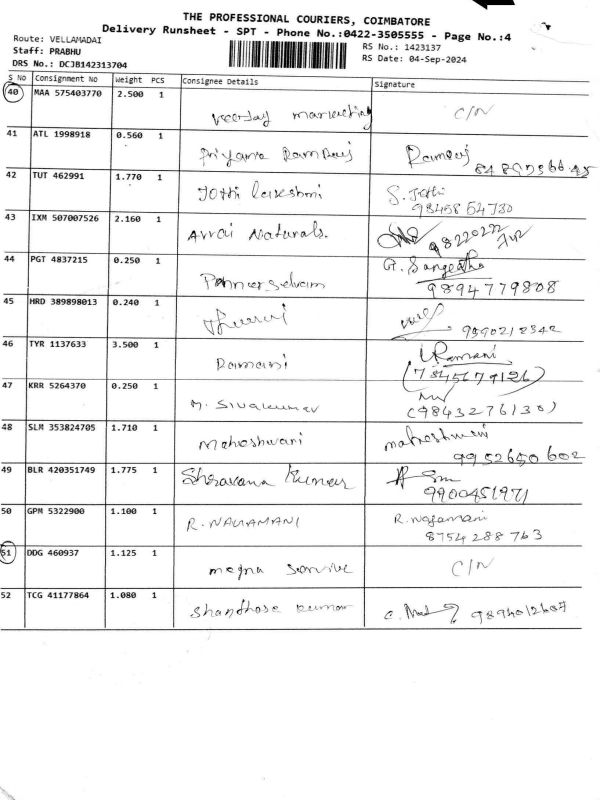 THE PROFESSIONAL COURIERS, COIMBATORE
Delivery Runsheet - SPT - Phone No.:0422-3505555 - Page No.:4
Route: VELLAMADAI
RS No.: 1423137
Staff: PRABHU
RS Date: 04-Sep-2024
DRS No.: DCJB142313704
S No Consignment No Weight PCS Consignee Details Signature
40 MAA 575403770 2.500 1 C/N
41 ATL 1998918 0.560 1 Priyama Ramraj Ramraj
42 TUT 462991 1.770 1 Jothi Lakshmi S. Jothi
9845854730
43 IXM 507007526 2.160 1 Avrai Naturals.
44 PGT 4837215 0.250 1 Ponnerselvam G. Sangeetha
9894779808
45 HRD 389898013 0.240 1
9590212342
46 TYR 1137633 3.500 1 Ramani Ramani
47 KRR 5264370 0.250 1 M. Sivakumar
(9843276130)
48 SLM 353824705 1.710 1 Maheshwari maheshwari
9952650602
49 BLR 420351749 1.775 1 Shravana Kumar
9900451971
50 GPM 5322900 1.100 1 R. NAGAMANI R. Nagamani
8754288763
51 DDG 460937 1.125 1 megna C/N
52 TCG 41177864 1.080 1 Shanthosa kumar 9894012607